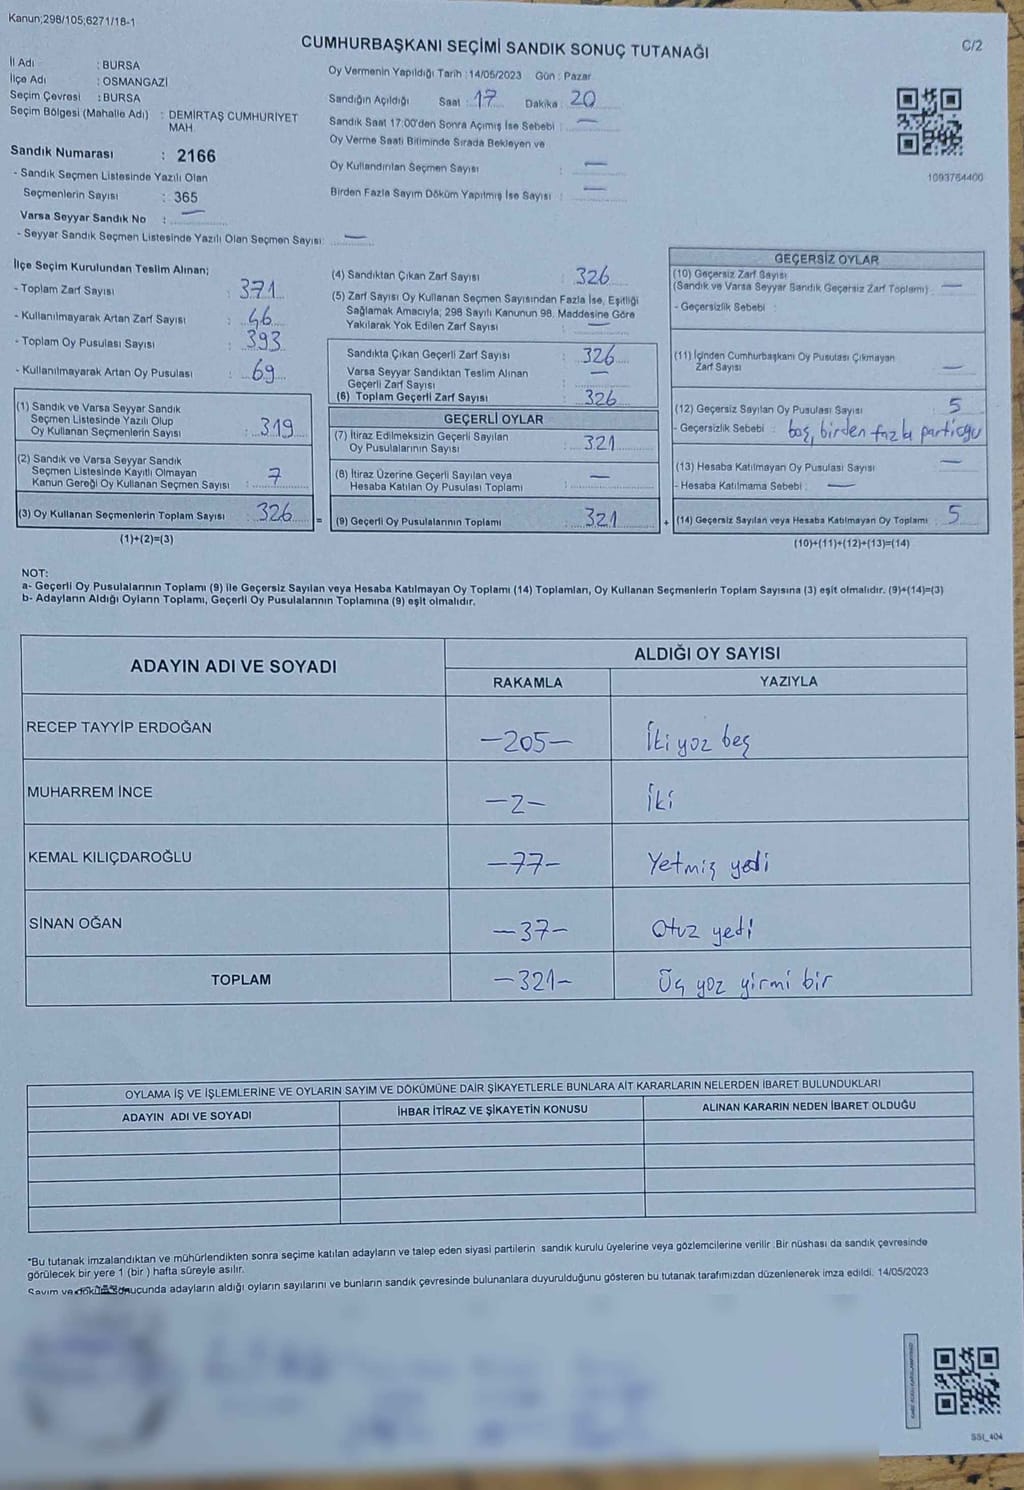 Kanun;298/105;6271/18-1
CUMHURBAŞKANI SEÇİMİ SANDIK SONUÇ TUTANAĞI
C/2
İl Adı : BURSA
İlçe Adı : OSMANGAZİ
Seçim Çevresi : BURSA
Seçim Bölgesi (Mahalle Adı) : DEMİRTAŞ CUMHURİYET
MAH.
Sandık Numarası : 2166
- Sandık Seçmen Listesinde Yazılı Olan
Seçmenlerin Sayısı : 365
Varsa Seyyar Sandık No : —
- Seyyar Sandık Seçmen Listesinde Yazılı Olan Seçmen Sayısı: —
Oy Vermenin Yapıldığı Tarih :14/05/2023 Gün : Pazar
Sandığın Açıldığı Saat : 17 Dakika : 20
Sandık Saat 17:00'den Sonra Açımış İse Sebebi : —
Oy Verme Saati Bitiminde Sırada Bekleyen ve
Oy Kullandırılan Seçmen Sayısı : —
Birden Fazla Sayım Döküm Yapılmış İse Sayısı : —
1093764400
İlçe Seçim Kurulundan Teslim Alınan;
- Toplam Zarf Sayısı : 371
- Kullanılmayarak Artan Zarf Sayısı : 46
- Toplam Oy Pusulası Sayısı : 393
- Kullanılmayarak Artan Oy Pusulası : 69
(1) Sandık ve Varsa Seyyar Sandık
Seçmen Listesinde Yazılı Olup
Oy Kullanan Seçmenlerin Sayısı : 319
(2) Sandık ve Varsa Seyyar Sandık
Seçmen Listesinde Kayıtlı Olmayan
Kanun Gereği Oy Kullanan Seçmen Sayısı : 7
(3) Oy Kullanan Seçmenlerin Toplam Sayısı : 326
(1)+(2)=(3)
(4) Sandıktan Çıkan Zarf Sayısı : 326
(5) Zarf Sayısı Oy Kullanan Seçmen Sayısından Fazla İse, Eşitliği
Sağlamak Amacıyla; 298 Sayılı Kanunun 98. Maddesine Göre
Yakılarak Yok Edilen Zarf Sayısı : —
Sandıkta Çıkan Geçerli Zarf Sayısı : 326
Varsa Seyyar Sandıktan Teslim Alınan
Geçerli Zarf Sayısı : —
(6) Toplam Geçerli Zarf Sayısı : 326
GEÇERLİ OYLAR
(7) İtiraz Edilmeksizin Geçerli Sayılan
Oy Pusulalarının Sayısı : 321
(8) İtiraz Üzerine Geçerli Sayılan veya
Hesaba Katılan Oy Pusulası Toplamı : —
= (9) Geçerli Oy Pusulalarının Toplamı : 321
GEÇERSİZ OYLAR
(10) Geçersiz Zarf Sayısı
(Sandık ve Varsa Seyyar Sandık Geçersiz Zarf Toplamı) : —
- Geçersizlik Sebebi :
(11) İçinden Cumhurbaşkanı Oy Pusulası Çıkmayan
Zarf Sayısı —
(12) Geçersiz Sayılan Oy Pusulası Sayısı : 5
- Geçersizlik Sebebi : boş, birden fazla partioyu
(13) Hesaba Katılmayan Oy Pusulası Sayısı : —
- Hesaba Katılmama Sebebi : —
+ (14) Geçersiz Sayılan veya Hesaba Katılmayan Oy Toplamı : 5
(10)+(11)+(12)+(13)=(14)
NOT:
a- Geçerli Oy Pusulalarının Toplamı (9) ile Geçersiz Sayılan veya Hesaba Katılmayan Oy Toplamı (14) Toplamları, Oy Kullanan Seçmenlerin Toplam Sayısına (3) eşit olmalıdır. (9)+(14)=(3)
b- Adayların Aldığı Oyların Toplamı, Geçerli Oy Pusulalarının Toplamına (9) eşit olmalıdır.
ADAYIN ADI VE SOYADI
ALDIĞI OY SAYISI
RAKAMLA YAZIYLA
RECEP TAYYİP ERDOĞAN —205— İki yoz beş
MUHARREM İNCE —2— İki
KEMAL KILIÇDAROĞLU —77— Yetmiş yedi
SİNAN OĞAN —37— Otuz yedi
TOPLAM —321— Üç yoz yirmi bir
OYLAMA İŞ VE İŞLEMLERİNE VE OYLARIN SAYIM VE DÖKÜMÜNE DAİR ŞİKAYETLERLE BUNLARA AİT KARARLARIN NELERDEN İBARET BULUNDUKLARI
ADAYIN ADI VE SOYADI İHBAR İTİRAZ VE ŞİKAYETİN KONUSU ALINAN KARARIN NEDEN İBARET OLDUĞU
*Bu tutanak imzalandıktan ve mühürlendikten sonra seçime katılan adayların ve talep eden siyasi partilerin sandık kurulu üyelerine veya gözlemcilerine verilir .Bir nüshası da sandık çevresinde
görülecek bir yere 1 (bir ) hafta süreyle asılır.
Sayım ve dökümü sonucunda adayların aldığı oyların sayılarını ve bunların sandık çevresinde bulunanlara duyurulduğunu gösteren bu tutanak tarafımızdan düzenlenerek imza edildi. 14/05/2023
SSI_404